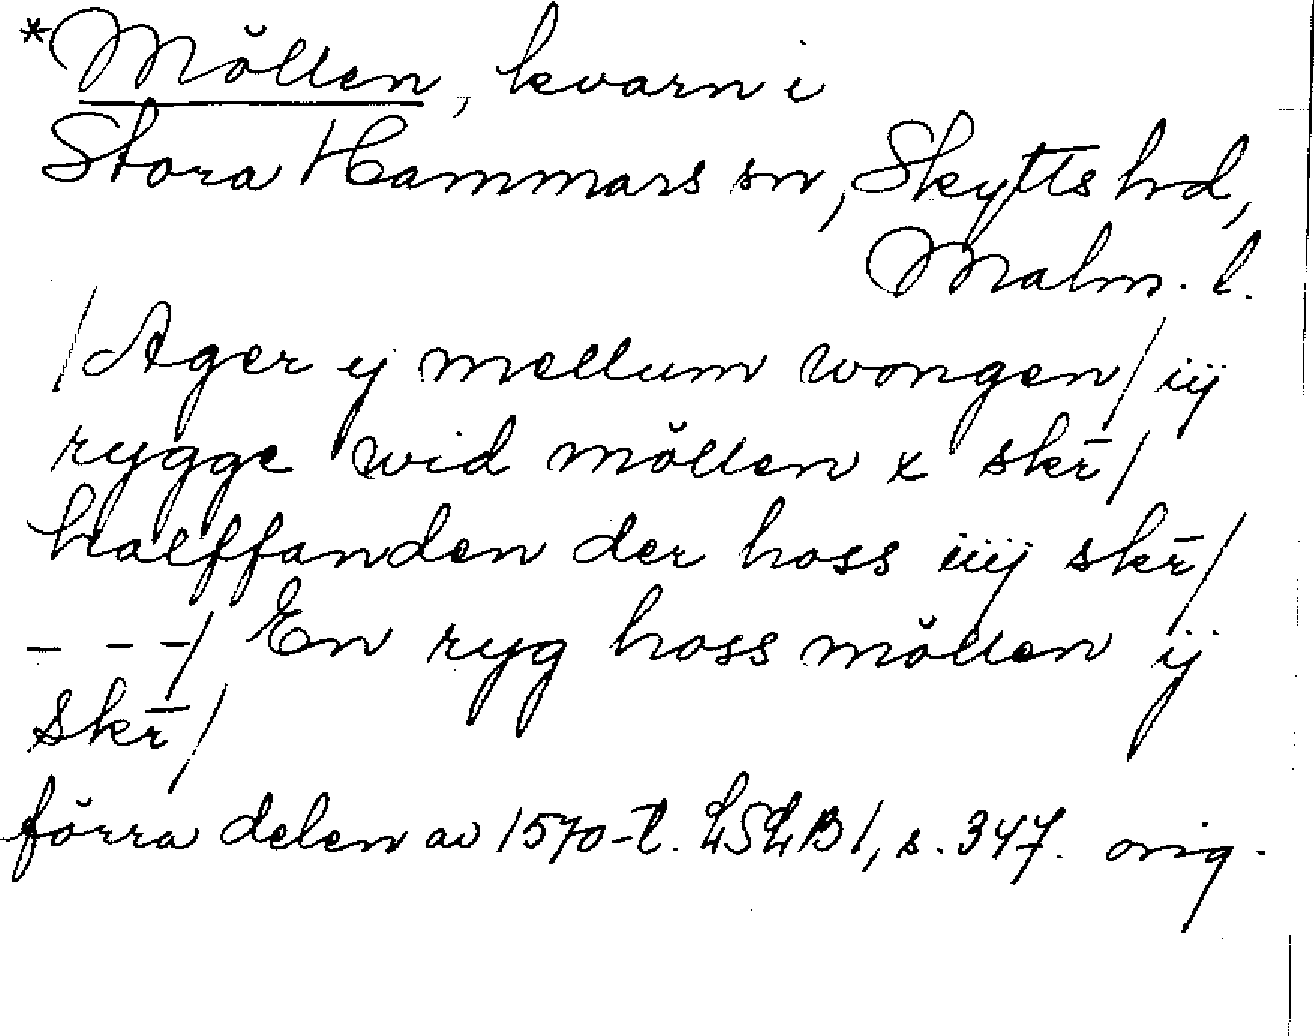 *Möllen, kvarn i
Stora Hammars sn, Skytts hd,
Malm. l.
/Ager ij mellum wongen/ iij
rygge wid möllen x skr̄/
halffanden der hoss iiij skr̄/
- - -/ En ryg hoss möllen ij
skr̄/
förra delen av 1570-t. LSLB 1, s. 347. orig.